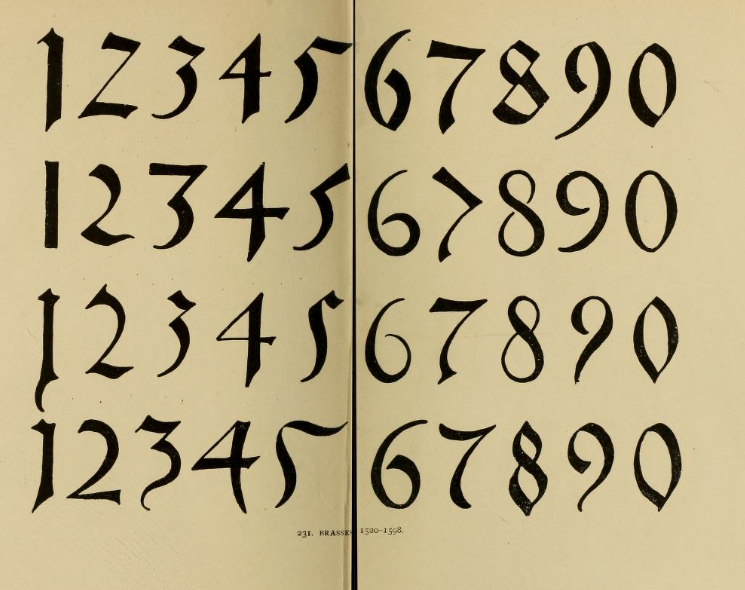 1234567890
1234567890
1234567890
1234567890
231. BRASSES 1520–1598.